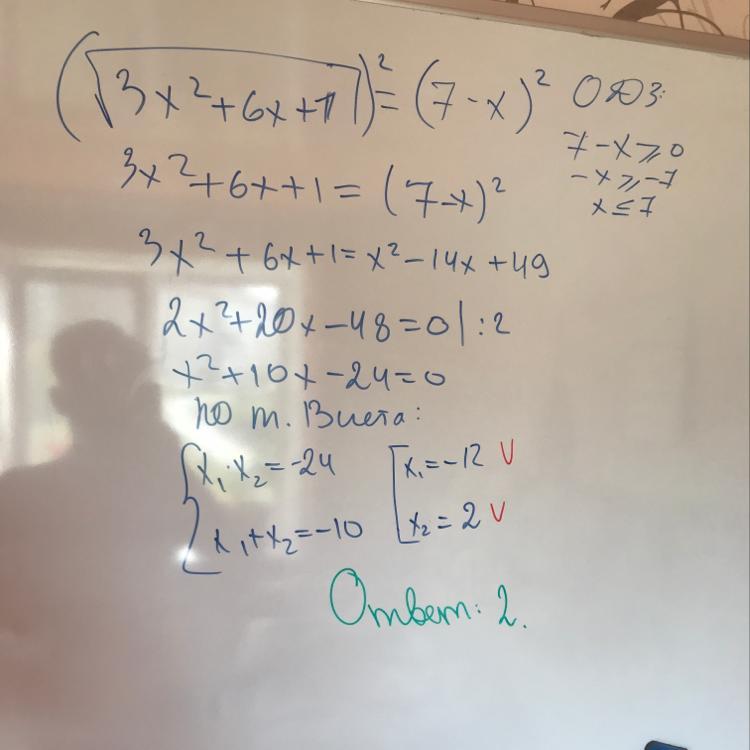 (√3x²+6x+1)² = (7-x)² ОДЗ:
7-x⩾0
-x⩾-7
x≤7
3x²+6x+1=(7-x)²
3x²+6x+1=x²-14x+49
2x²+20x-48=0|:2
x²+10x-24=0
по т. Виета:
{x₁·x₂=-24
x₁+x₂=-10
[x₁=-12 V
x₂=2 V
Ответ: 2.